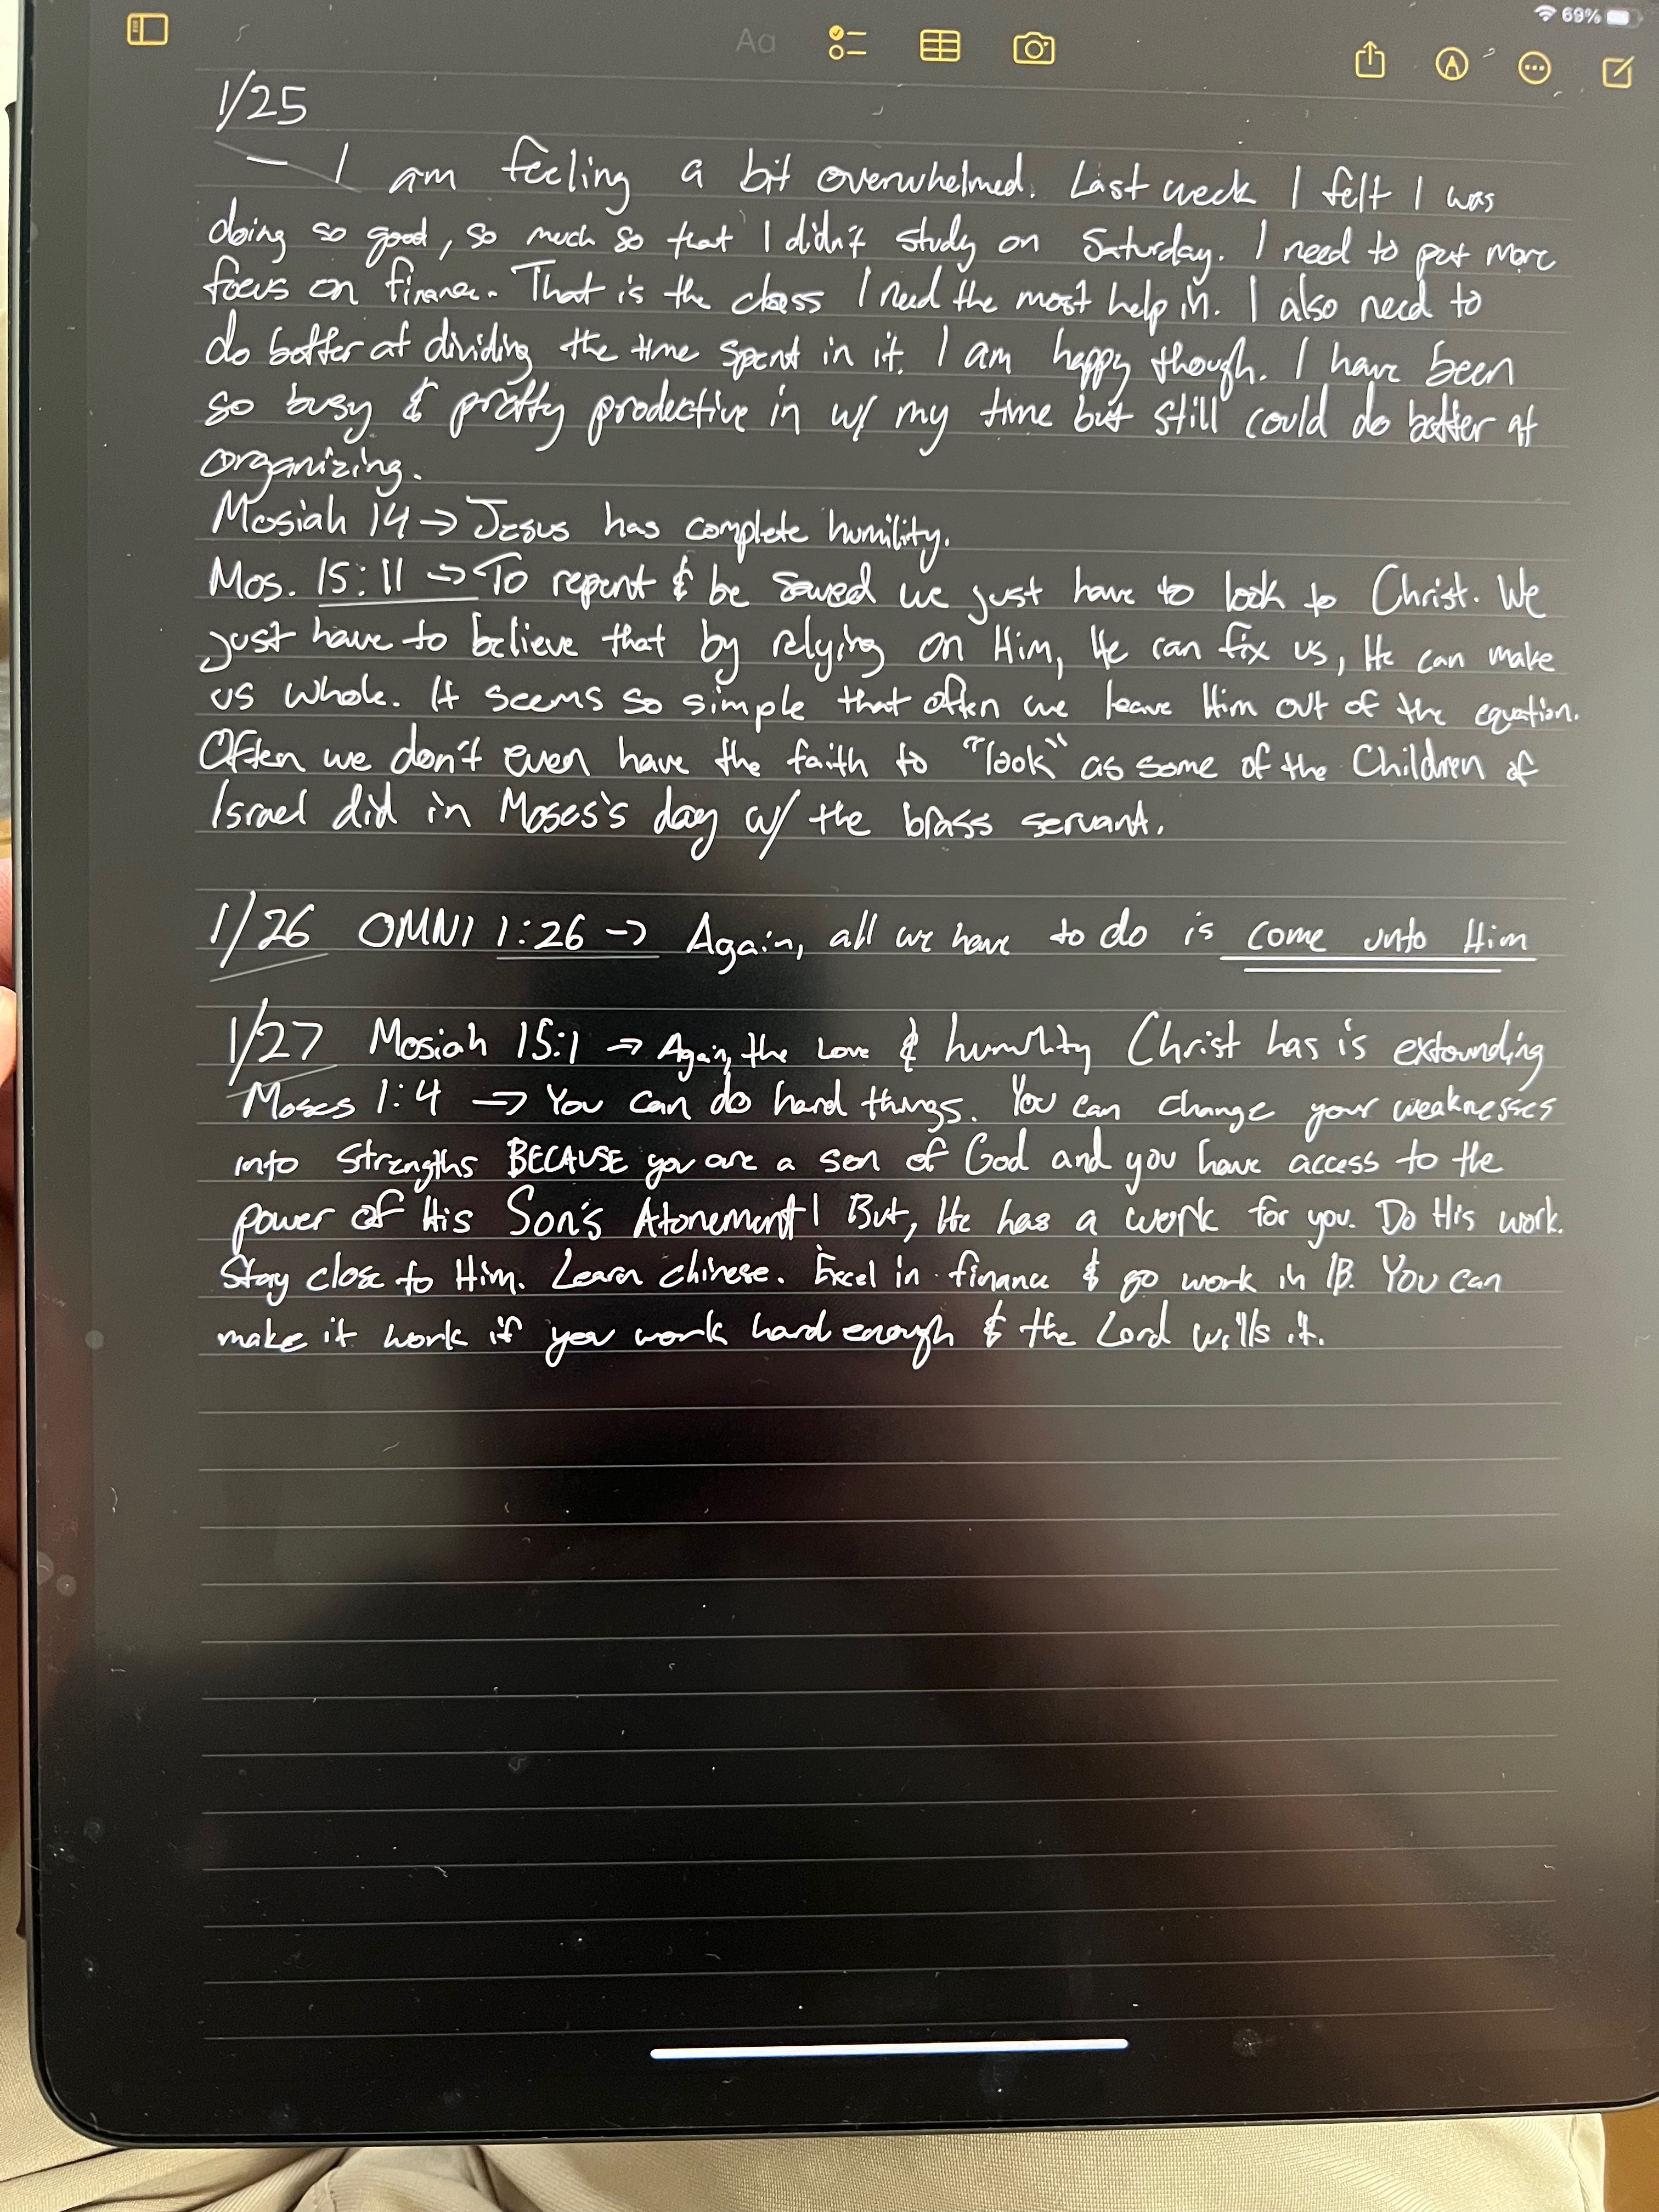 69%
Aa
1/25
— I am feeling a bit overwhelmed. Last week I felt I was
doing so good, so much so that I didn't study on Saturday. I need to put more
focus on finance. That is the class I need the most help in. I also need to
do better at dividing the time spent in it. I am happy though. I have been
so busy & pretty prodective in w/ my time but still could do better at
organizing.
Mosiah 14 → Jesus has complete humility.
Mos. 15:11 → To repent & be saved we just have to look to Christ. We
just have to believe that by relying on Him, He can fix us, He can make
us whole. It seems so simple that often we leave Him out of the equation.
Often we don't even have the faith to "look" as some of the Children of
Israel did in Moses's day w/ the brass servant.
1/26 OMNI 1:26 → Again, all we have to do is come unto Him
1/27 Mosiah 15:1 → Again, the Love & humility Christ has is extounding
Moses 1:4 → You can do hard things. You can change your weaknesses
into strengths BECAUSE you are a son of God and you have access to the
power of His Son's Atonement! But, He has a work for you. Do His work.
Stay close to Him. Learn chinese. Excel in finance & go work in IB. You can
make it work if you work hard enough & the Lord wills it.